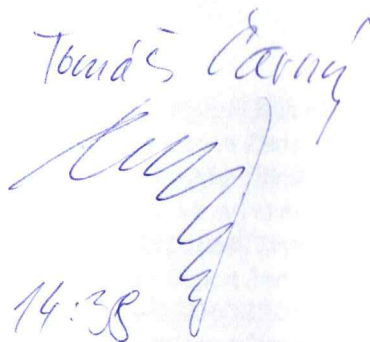 Tomáš Černý
14:38